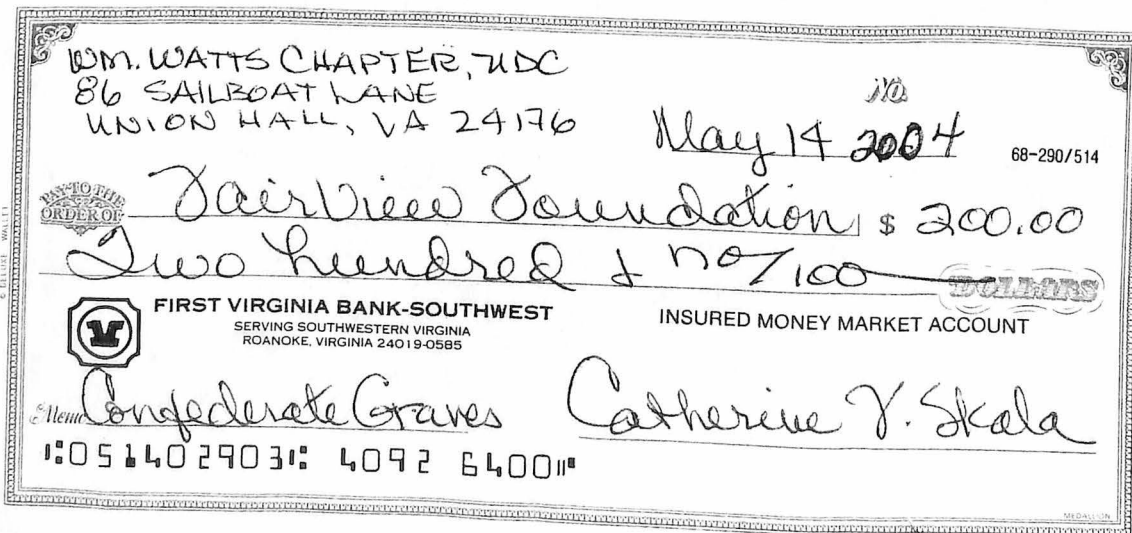 WM. WATTS CHAPTER, UDC
86 SAILBOAT LANE
UNION HALL, VA 24176
NO.
May 14 2004
68-290/514
PAY TO THE ORDER OF
FairView Foundation $ 200.00
Two hundred & no/100 DOLLARS
FIRST VIRGINIA BANK-SOUTHWEST
SERVING SOUTHWESTERN VIRGINIA
ROANOKE, VIRGINIA 24019-0585
INSURED MONEY MARKET ACCOUNT
Memo Confederate Graves
Catherine V. Skala
⑆051402903⑆ 4092 6400⑈
© DELUXE WALLET
MEDALLION